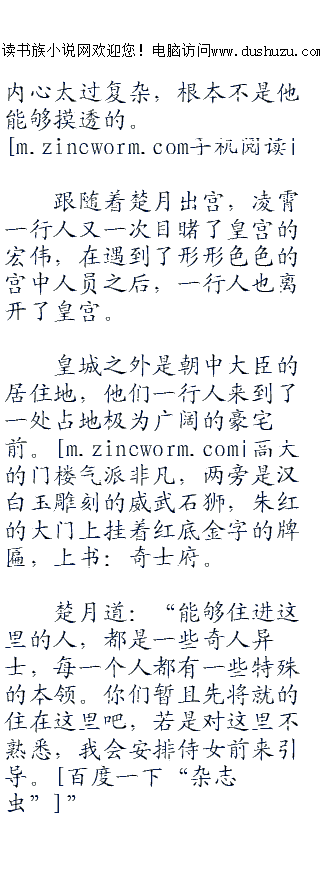 读书族小说网欢迎您！电脑访问www.dushuzu.com
内心太过复杂，根本不是他
能够摸透的。
[m.zincworm.com手机阅读i
跟随着楚月出宫，凌霄
一行人又一次目睹了皇宫的
宏伟，在遇到了形形色色的
宫中人员之后，一行人也离
开了皇宫。
皇城之外是朝中大臣的
居住地，他们一行人来到了
一处占地极为广阔的豪宅
前。[m.zincworm.comi高大
的门楼气派非凡，两旁是汉
白玉雕刻的威武石狮，朱红
的大门上挂着红底金字的牌
匾，上书：奇士府。
楚月道：“能够住进这
里的人，都是一些奇人异
士，每一个人都有一些特殊
的本领。你们暂且先将就的
住在这里吧，若是对这里不
熟悉，我会安排侍女前来引
导。[百度一下“杂志
虫”]”